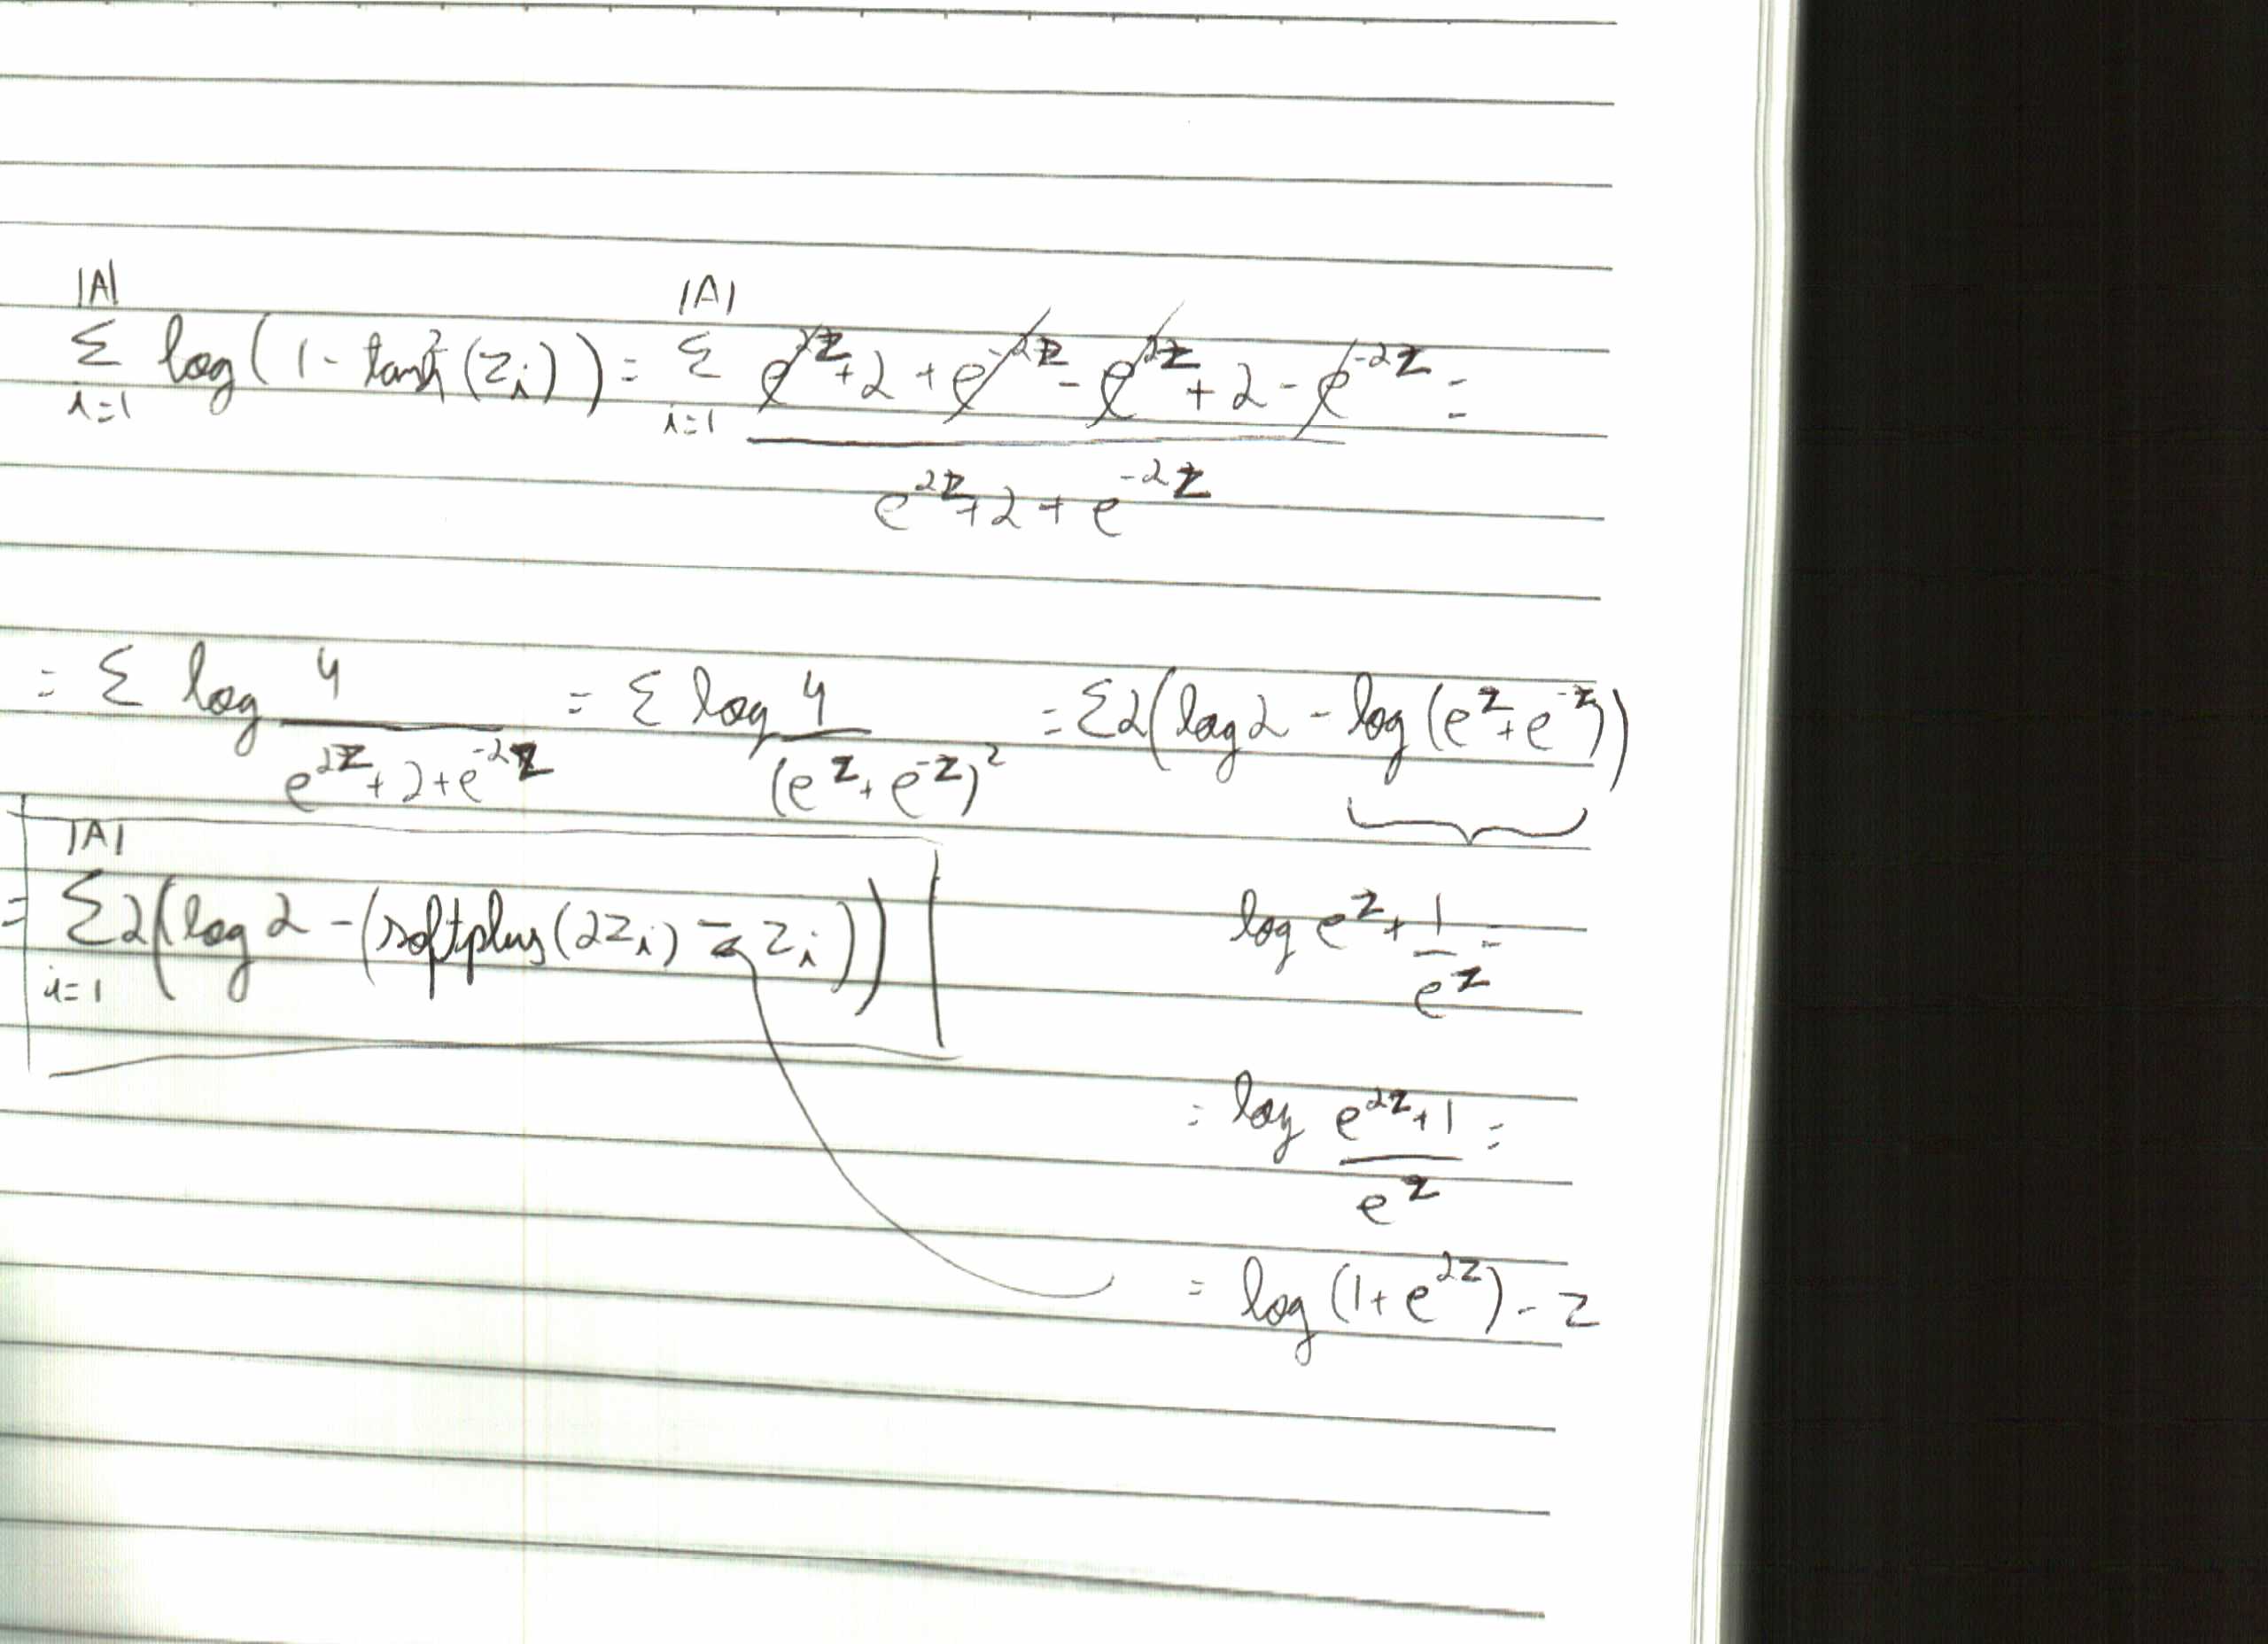 |A| |A|
Σ log(1 - tanh²(z_i)) = Σ e^{2z} + 2 + e^{-2z} - e^{2z} + 2 - e^{-2z} =
i=1 i=1
e^{2z} + 2 + e^{-2z}
= Σ log 4 / (e^{2z} + 2 + e^{-2z}) = Σ log 4 / (e^z + e^{-z})² = Σ2(log 2 - log(e^z + e^{-z}))
|A|
= Σ2(log 2 - (softplus(2z_i) - z_i))
i=1
log e^z + 1/e^z =
= log (e^{2z} + 1)/e^z =
= log(1 + e^{2z}) - z